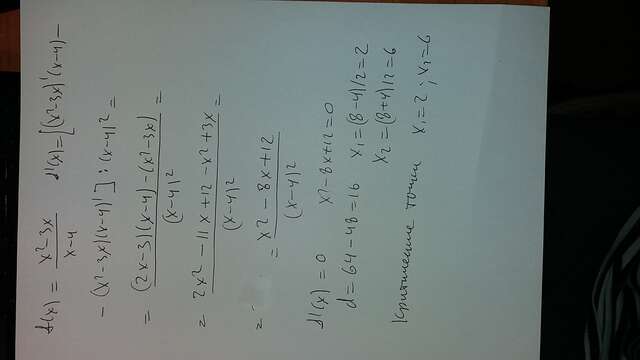 f(x) = x²-3x / x-4   f'(x) = [(x²-3x)'(x-4) -
- (x²-3x)(x-4)'] : (x-4)² =
= (2x-3)(x-4) - (x²-3x) / (x-4)² =
= 2x² - 11x + 12 - x² + 3x / (x-4)² =
= x² - 8x + 12 / (x-4)²
f'(x) = 0   x² - 8x + 12 = 0
d = 64 - 48 = 16   x₁ = (8-4)/2 = 2
x₂ = (8+4)/2 = 6
Критические точки   x₁ = 2; x₂ = 6